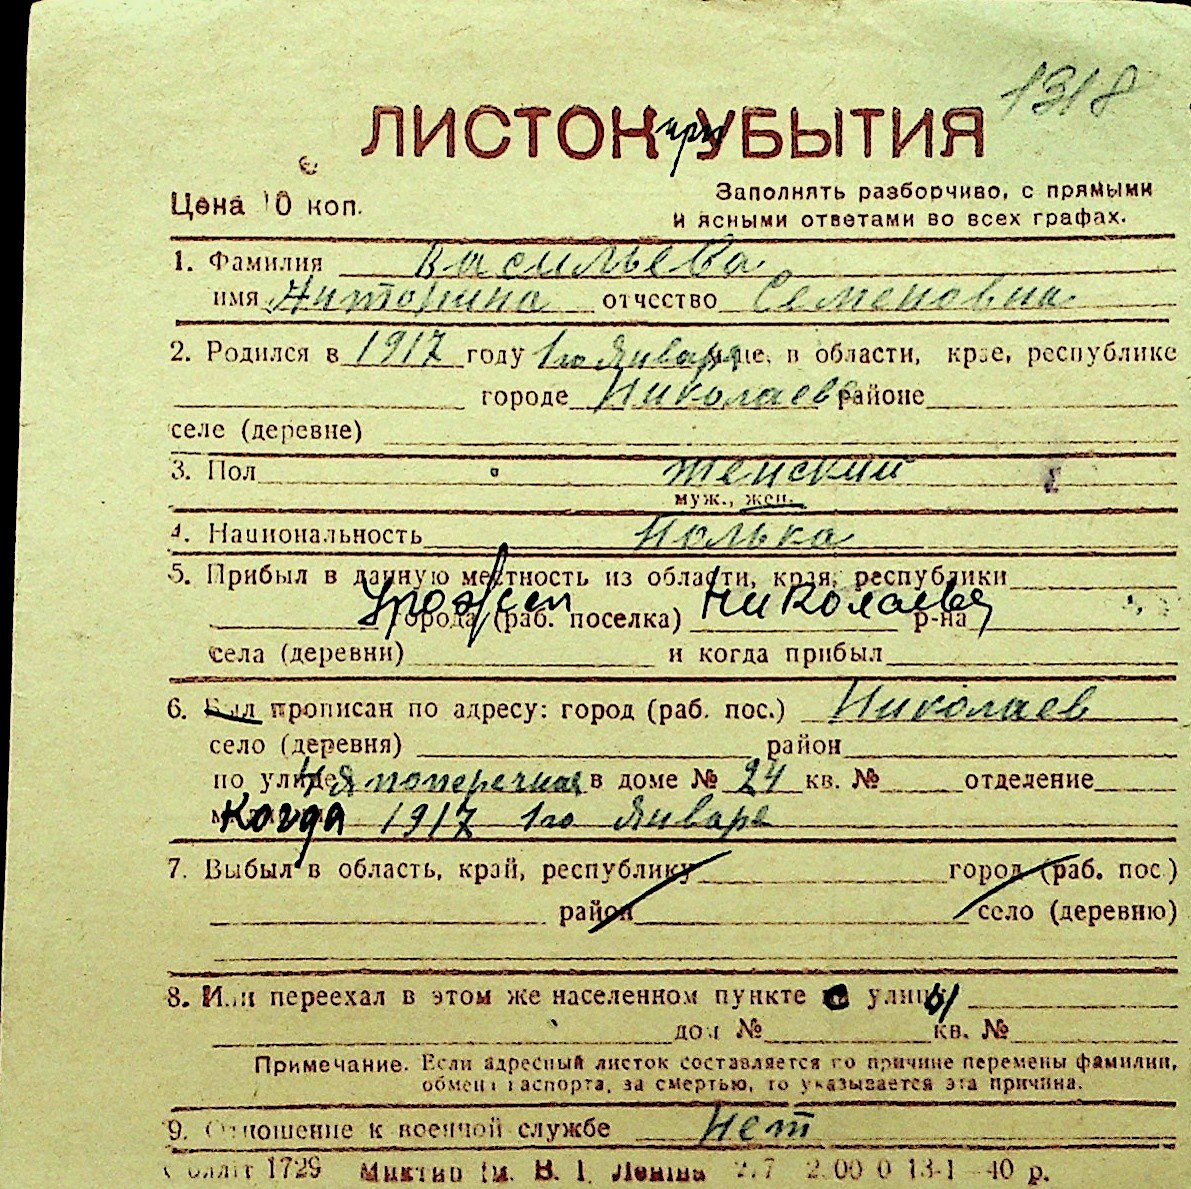 1318
ЛИСТОК при УБЫТИЯ
Цена 10 коп.
Заполнять разборчиво, с прямыми
и ясными ответами во всех графах.
1. Фамилия Васильева
имя Антонина отчество Семеновна
2. Родился в 1917 году 1го Января це, в области, крае, республике
городе Николаеве районе
селе (деревне)
3. Пол женский
муж., жен.
4. Национальность Полька
5. Прибыл в данную местность из области, края, республики
Урожен города (раб. поселка) Николаева р-на
села (деревни) и когда прибыл
6. Был прописан по адресу: город (раб. пос.) Николаев
село (деревня) район
по улице 4я поперечная в доме № 24 кв. № отделение
Когда 1917 1го Января
7. Выбыл в область, край, республику город (раб. пос.)
район село (деревню)
8. Или переехал в этом же населенном пункте с улицы
дом № кв. №
Примечание. Если адресный листок составляется по причине перемены фамилии,
обмена паспорта, за смертью, то указывается эта причина.
9. Отношение к военной службе Нет
1729 ім. В. І. Леніна 13-1—40 р.